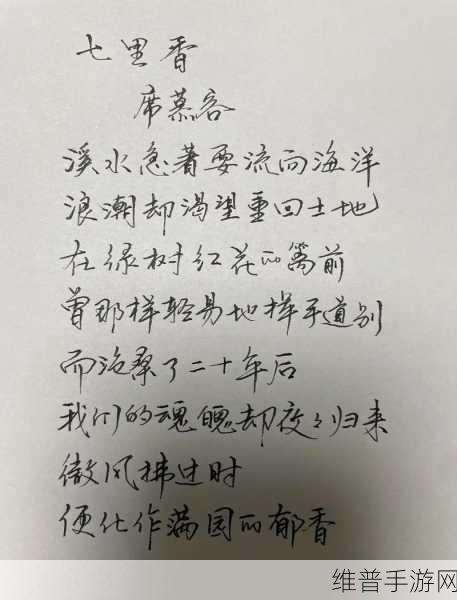 七里香
席慕容
溪水急著要流向海洋
浪潮却渴望重回土地
在绿树红花的篱前
曾那样轻易地挥手道别
而沧桑了二十年后
我们的魂魄却夜々归来
微风拂过时
便化作满园的郁香
维普手游网